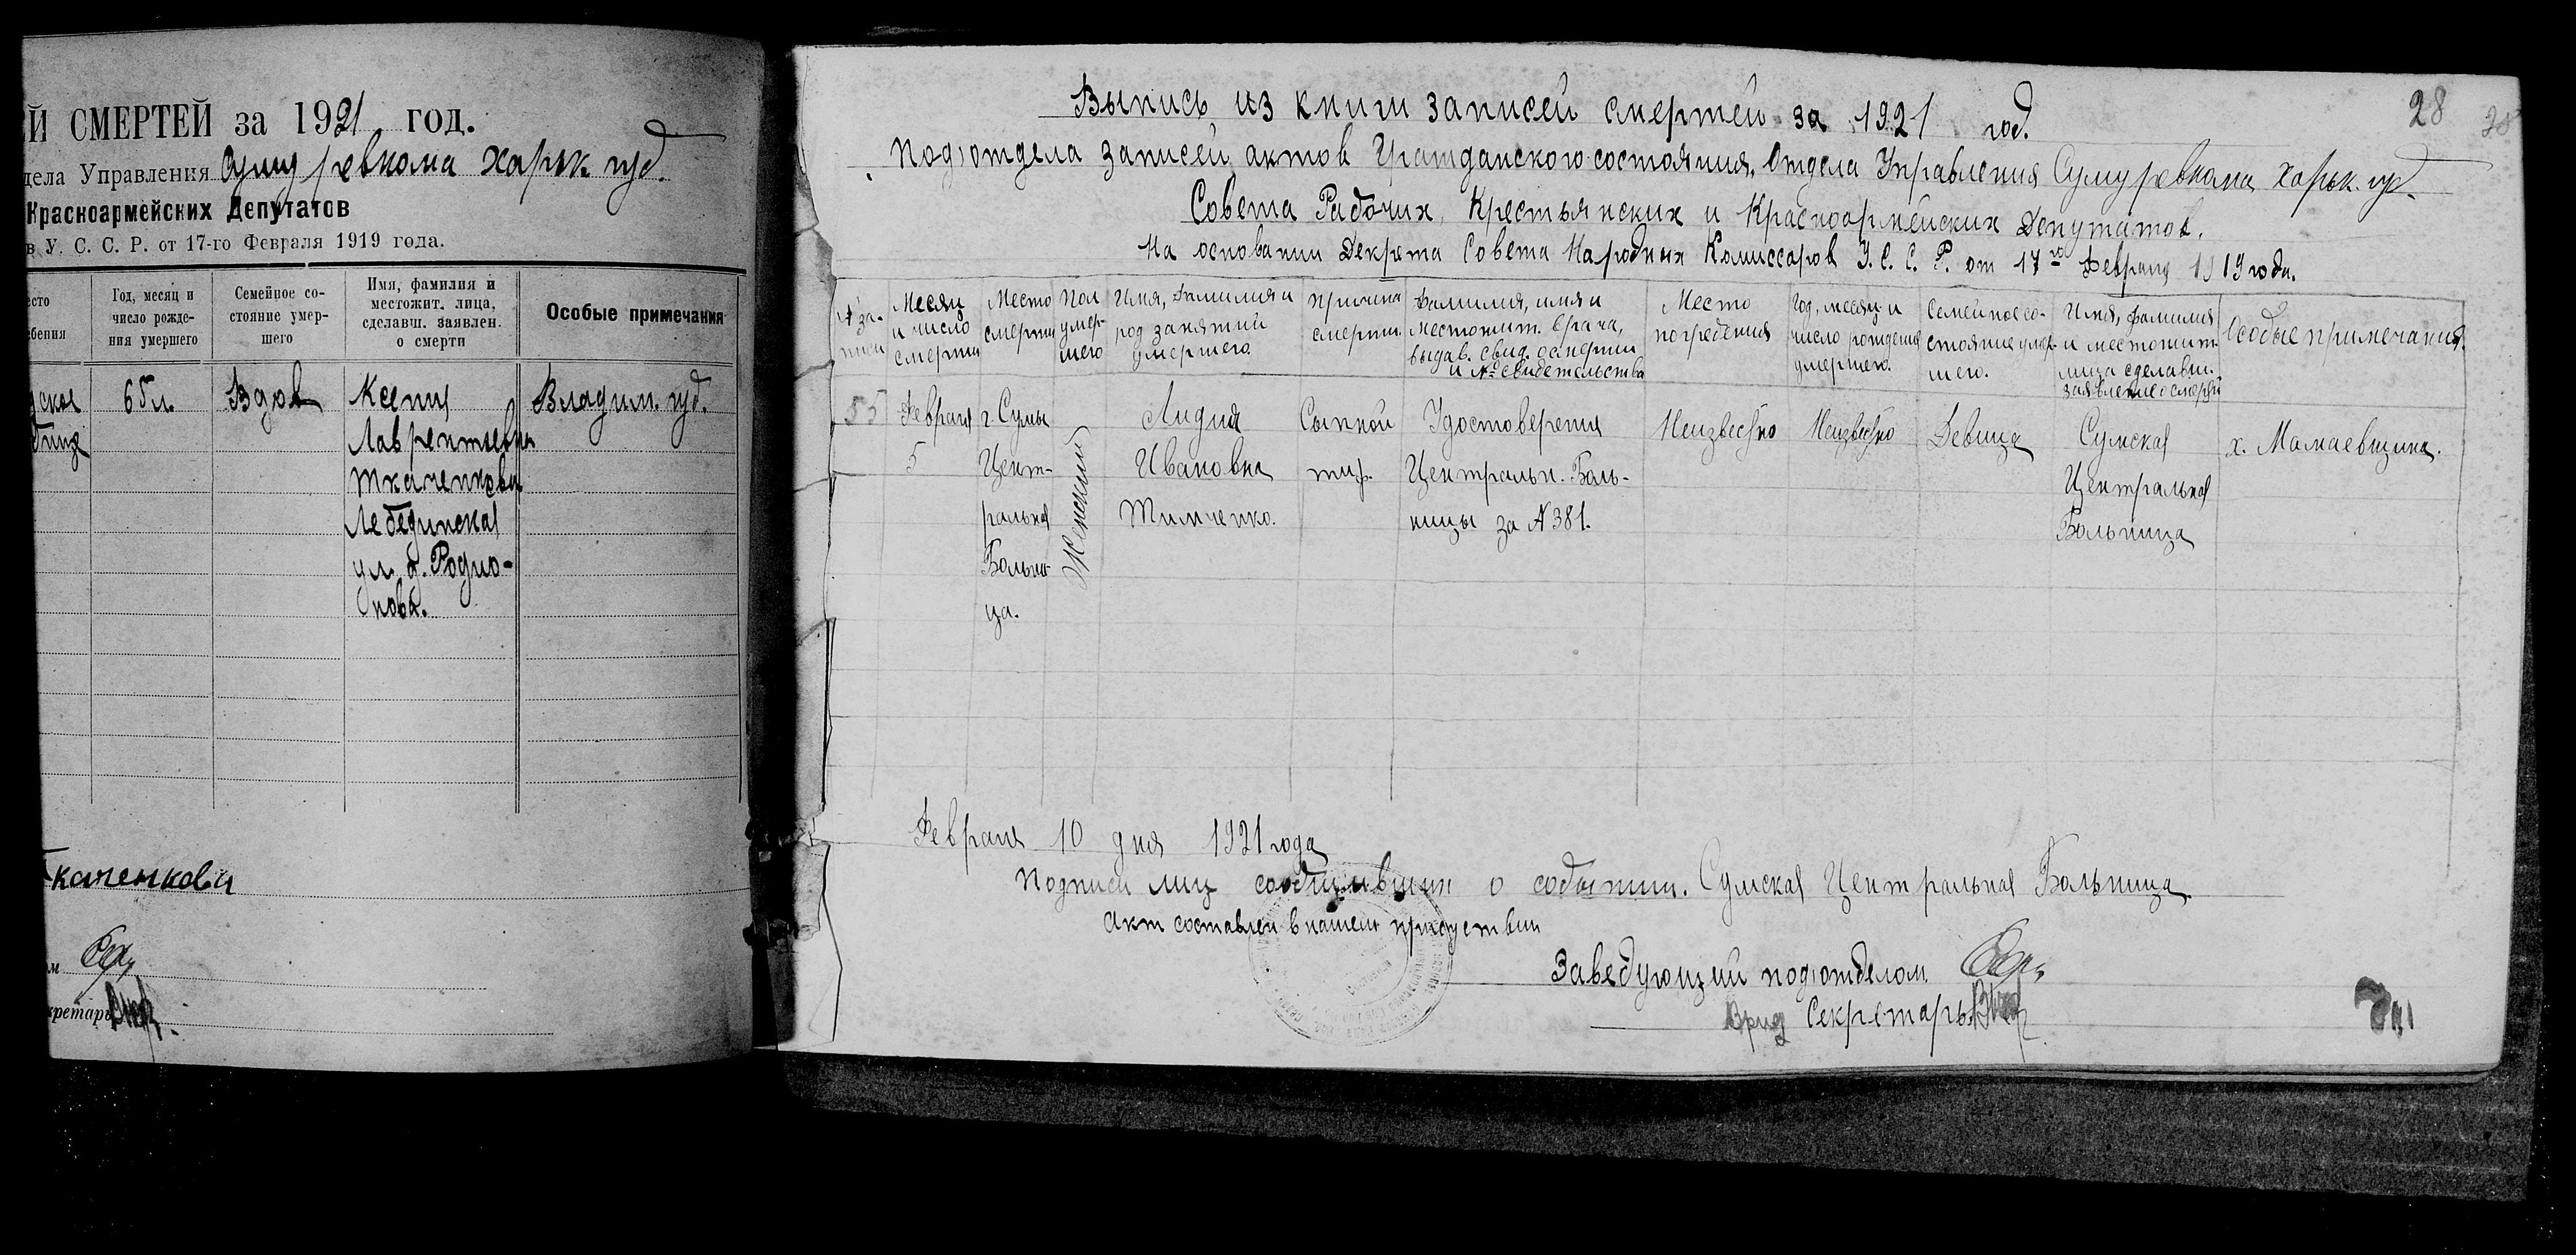 Й СМЕРТЕЙ за 1921 год.
дела Управления Сумуревкома харьк. губ.
Красноармейских Депутатов
в У. С. С. Р. от 17-го Февраля 1919 года.
есто
ебения
Год, месяц и
число рожде-
ния умершего
Семейное со-
стояние умер-
шего
Имя, фамилия и
местожит. лица,
сделавш. заявлен.
о смерти
Особые примечания
65 л.
Вдов
Ксения
Лаврентьевна
Ткаченкова
Лебединская
ул. д. Родио-
нова.
Владим. губ.
Ткаченкова
ом
кретарь
28
Выпись из книги записей смертей за 1921 год.
Подотдела записей актов Гражданского состояния, Отдела Управления Сумуревкома Харьк. губ.
Совета Рабочих, Крестьянских и Красноармейских Депутатов.
На основании Декрета Совета Народных Комиссаров У. С. С. Р. от 17го Февраля 1919 года.
№ за-
писи
Месяц
и число
смерти
Место
смерти
Пол
умер-
шего
Имя, фамилия и
род занятий
умершего.
Причина
смерти.
Фамилия, имя и
местожит. врача,
выдав. свид. о смерти
и № свидетельства
Место
погребения
Год, месяц и
число рождения
умершего.
Семейное со-
стояние умер-
шего.
Имя, фамилия
и местожит.
лица сделавш.
заявление о смерти
Особые примечания.
55
Февраля
5
г. Сумы
Цент-
ральная
Больни-
ца.
Женский
Лидия
Ивановна
Тимченко.
Сыпной
тиф.
Удостоверения
Центральн. Боль-
ницы за № 381.
Неизвестно
Неизвестно
Девица
Сумская
Центральная
Больница
х. Мамаевщина.
Февраля 10 дня 1921 года
Подписи лиц сообщивших о событии. Сумская Центральная Больница.
Акт составлен в нашем присутствии
Заведующий подотделом
Врид Секретарь